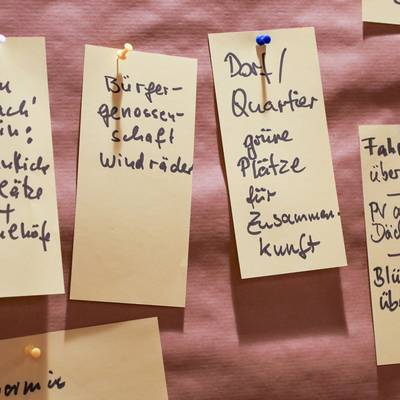 ach'
in:
+
Bürger-
genossen-
schaft
Windräder
Dorf/
Quartier
grüne
Plätze
für
Zusammen-
kunft
Fahr
über
PV a
Däch
Blü
übe